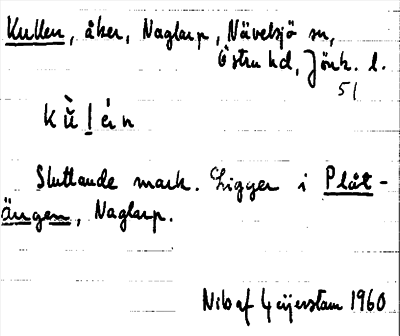 Kullen, åker, Naglarp, Nävelsjö sn,
Östra hd, Jönk. l.
51
Sluttande mark. Ligger i Plåt-
ängen, Naglarp.
Nils af Geijerstam 1960